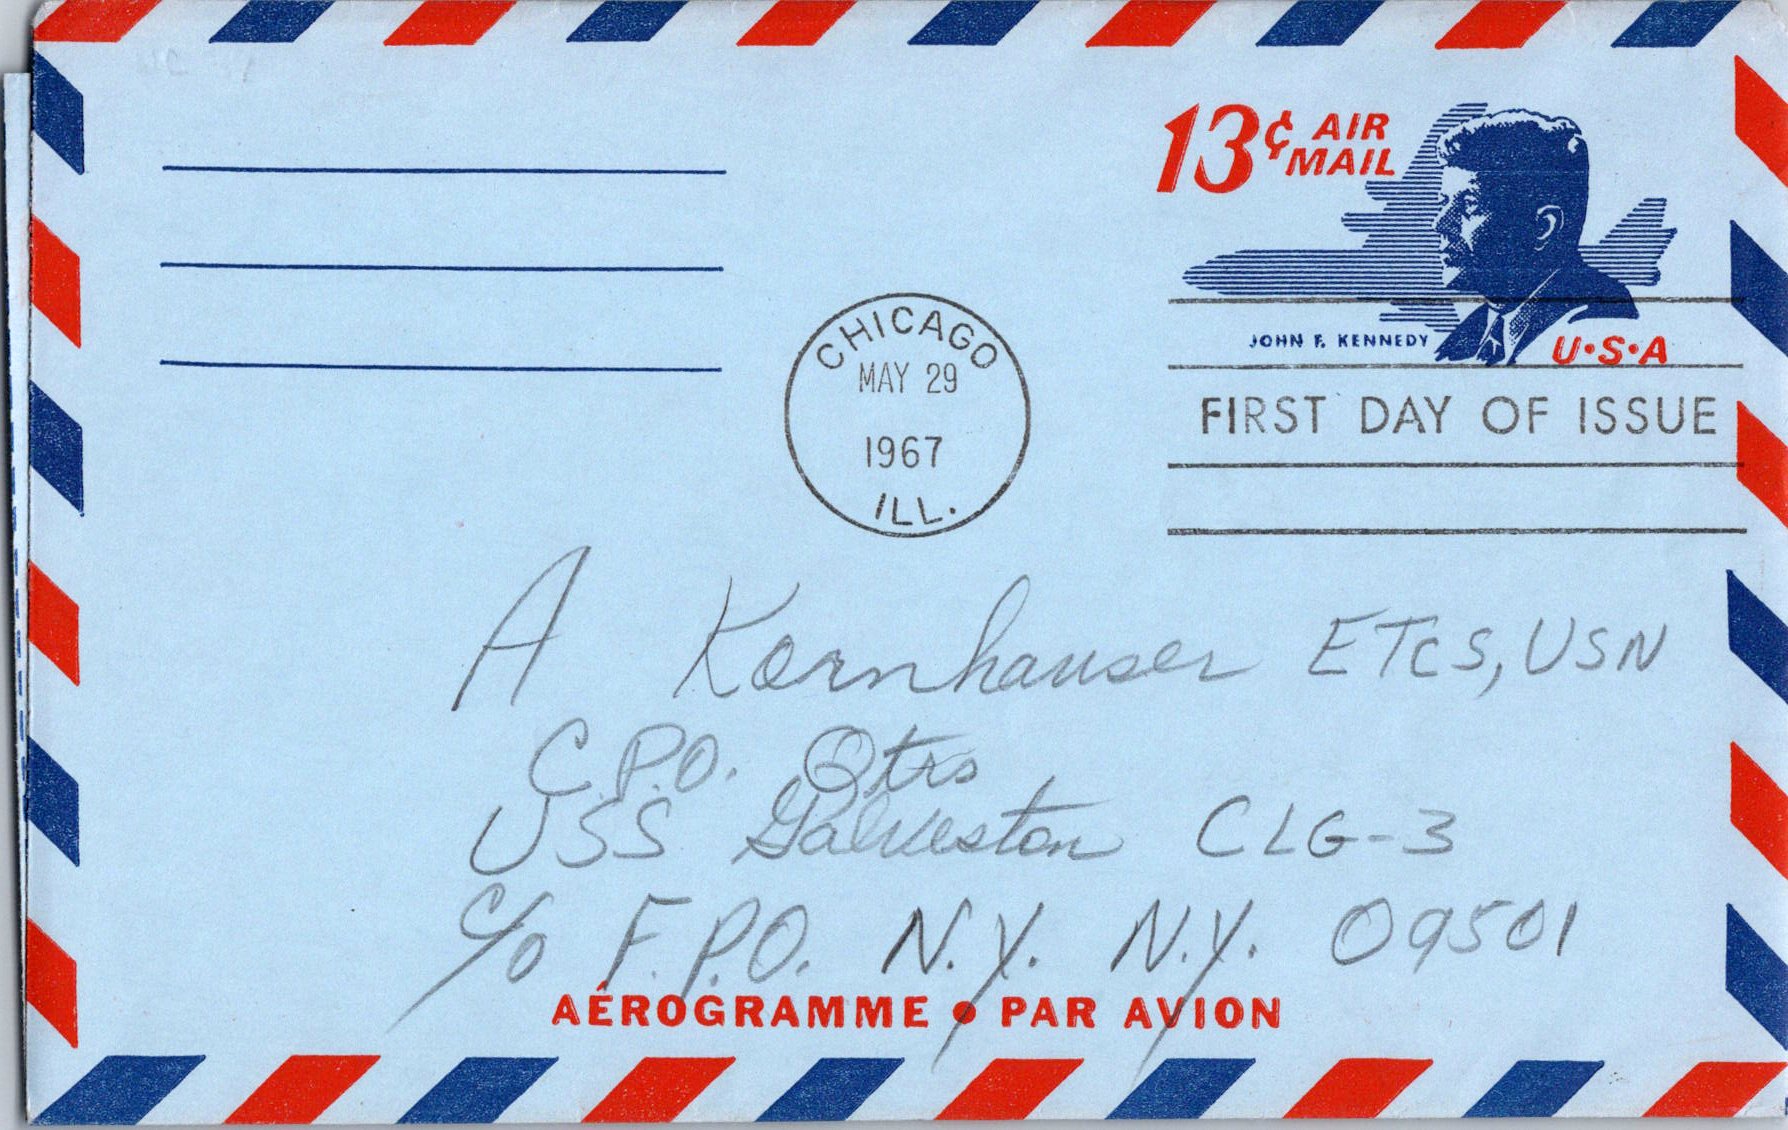 13¢ AIR MAIL
JOHN F. KENNEDY
U·S·A
CHICAGO
MAY 29
1967
ILL.
FIRST DAY OF ISSUE
A Kornhauser ETCS, USN
C.P.O. Qtrs
USS Galveston CLG-3
c/o F.P.O. N.Y. N.Y. 09501
AÉROGRAMME • PAR AVION